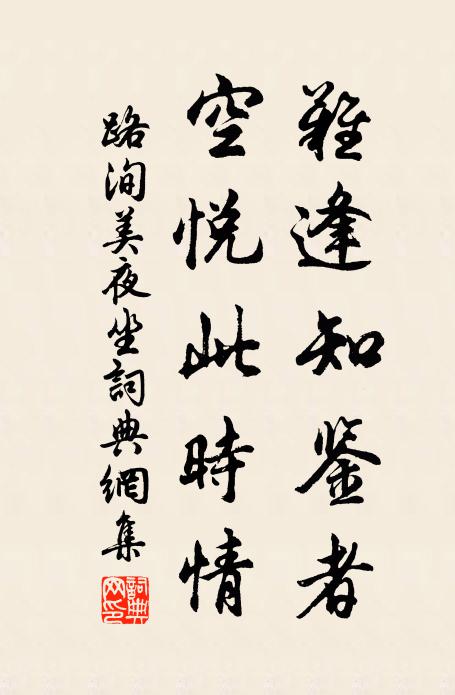 難逢知鑒者
空悅此時情
路洵美夜坐詞典網集
詞典网印